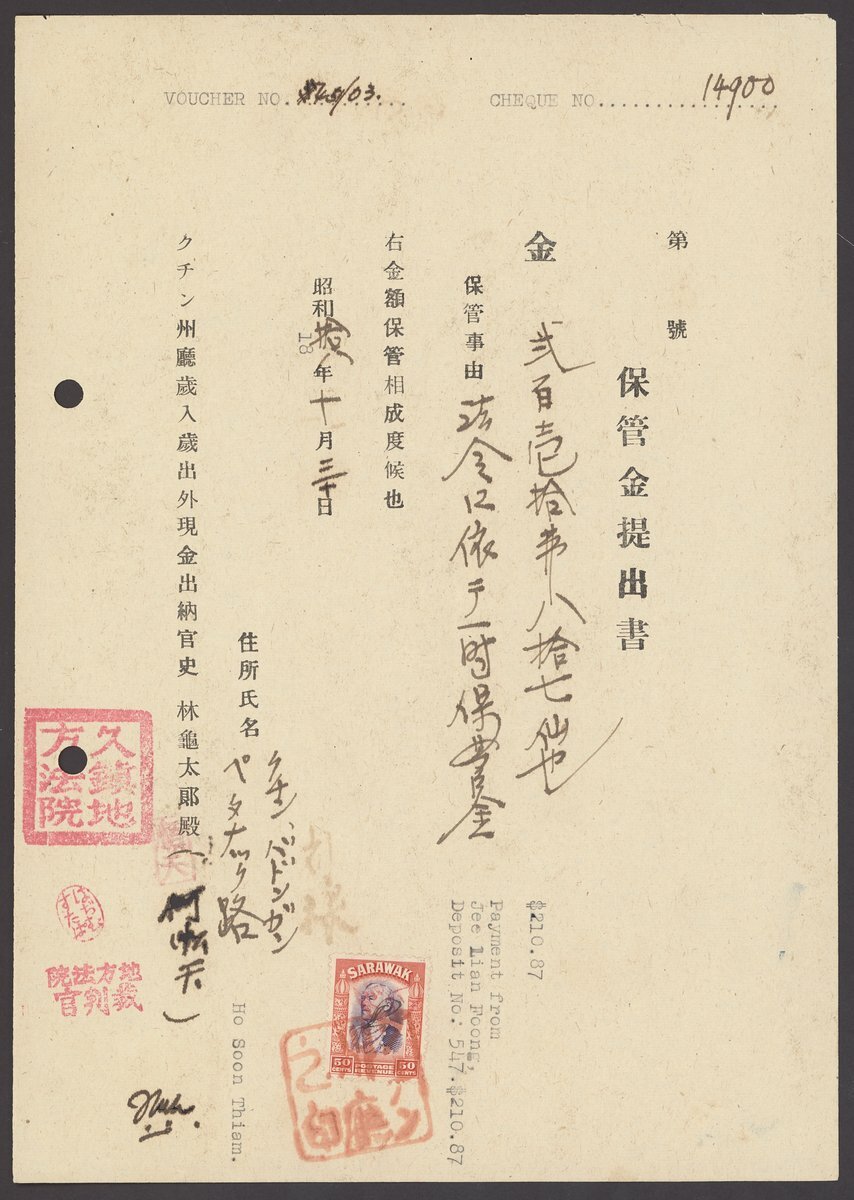 VOUCHER NO.
CHEQUE NO. 14900
第　號
保管金提出書
金 弐百壱拾弗八拾七仙也
保管事由 法令ニ依テ一時保管金
右金額保管相成度候也
昭和拾八年十月三十日
18
住所氏名
ペタナック路
クチン州廳歲入歲出外現金出納官史 林龜太郞殿
$210.87
Payment from
Jee Lian Foong,
Deposit No: 547.$210.87
Ho Soon Thiam.
久鎮地
方法院
地方法院
裁判官
SARAWAK
50 CENTS
POSTAGE
REVENUE
50 CENTS